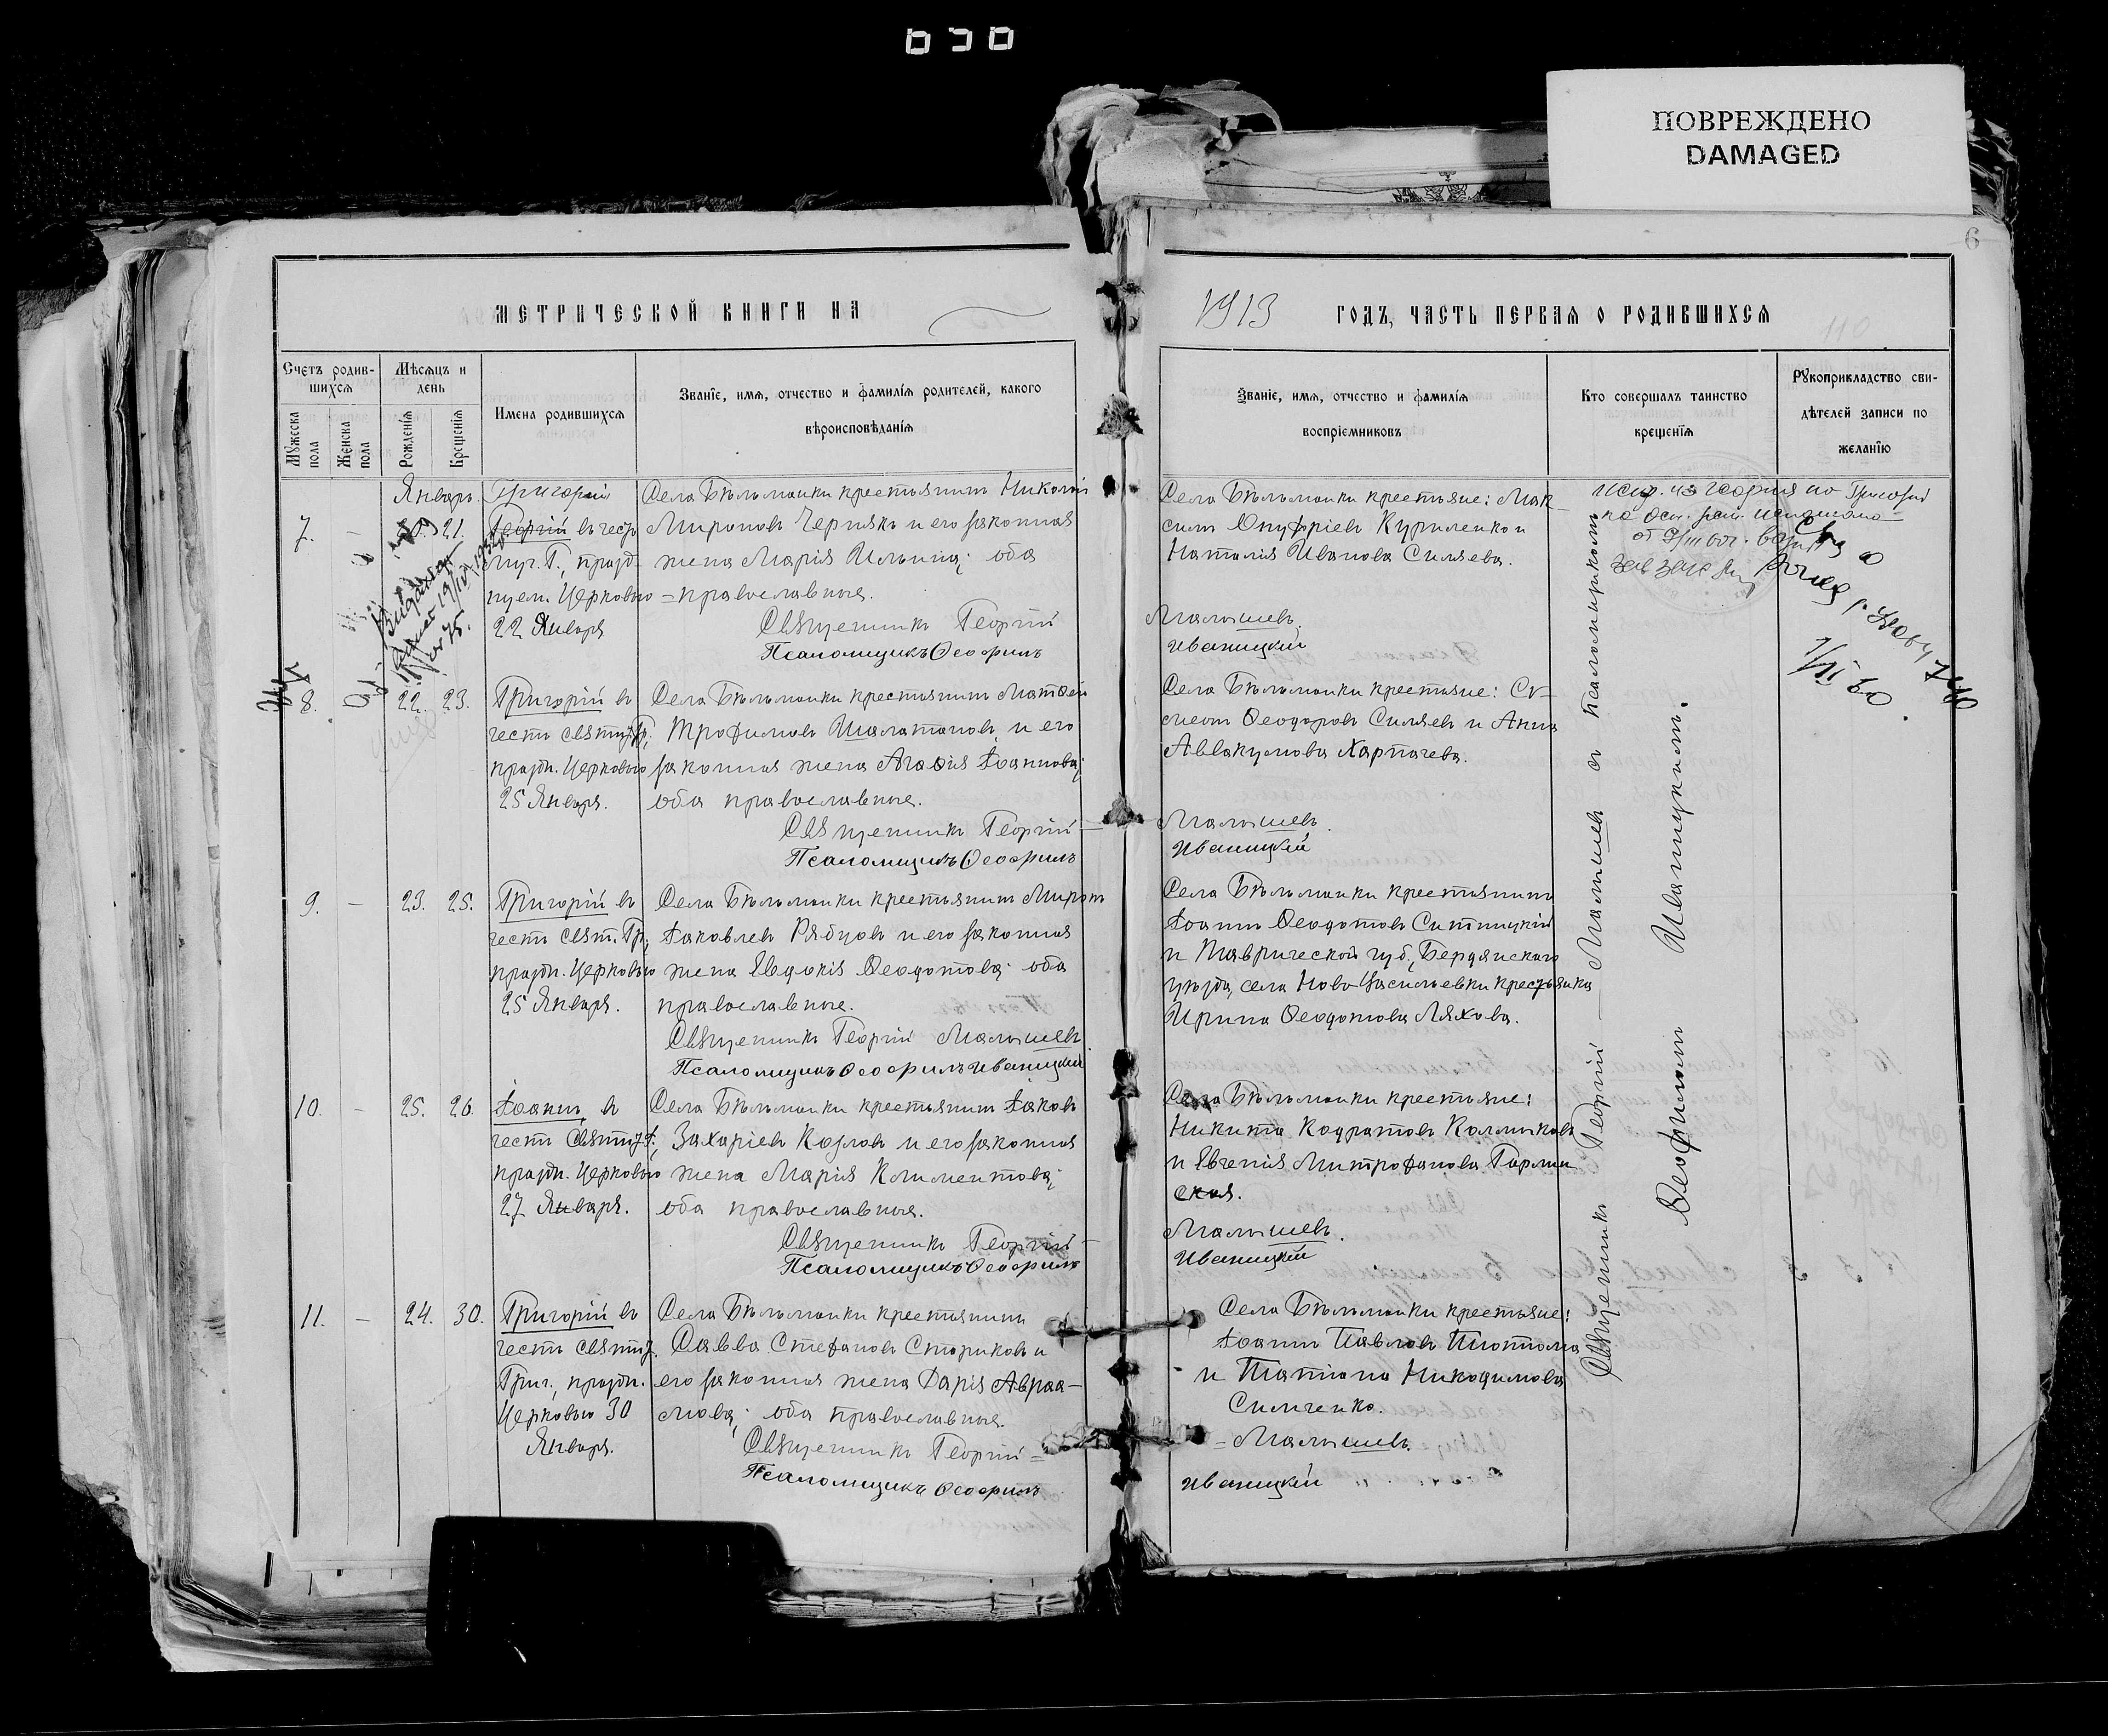 ПОВРЕЖДЕНО
DAMAGED
6
МЕТРИЧЕСКОЙ КНИГИ НА
1913 ГОДЪ, ЧАСТЬ ПЕРВАЯ О РОДИВШИХСЯ
Счетъ родив-
шихся
Мужеска
пола
Женска
пола
Мѣсяцъ и
день
Рожденія
Крещенія
Имена родившихся
Званіе, имя, отчество и фамилія родителей, какого
вѣроисповѣданія
Званіе, имя, отчество и фамилія
воспріемниковъ
Кто совершалъ таинство
крещенія
Рукоприкладство сви-
дѣтелей записи по
желанію
Январь.
7. –
21.
Григорий
Георгій въ честь
муч. Г., празд-
нуем. Церковью
22 Января
Села Бѣльманки крестьянинъ Николай
Мироновъ Чернякъ и его законная
жена Марія Ильина; оба
православные.
Священникъ Георгій
Псаломщикъ Ѳеофилъ
Села Бѣльманки крестьяне: Мак-
симъ Онуфріевъ Куриленко и
Наталія Иванова Силяева.
Малышевъ.
Иваницкій
испр. из Георгия на Григорий
на осн.
8.
22. 23.
Григорій въ
честь святит. Гр.,
праздн. Церковью
25 Января.
Села Бѣльманки крестьянинъ Матѳей
Трофимовъ Шалатоновъ, и его
законная жена Агаѳія Іоаннова;
оба православные.
Священникъ Георгій –
Псаломщикъ Ѳеофилъ
Села Бѣльманки крестьяне: Си-
меонъ Ѳеодоровъ Силяевъ и Анна
Аввакумова Харпачева.
Малышевъ.
Иваницкій
9. –
23. 25.
Григорій въ
честь свят. Гр.,
праздн. Церковью
25 Января.
Села Бѣльманки крестьянинъ Миронъ
Іаковлевъ Рябцовъ и его законная
жена Евдокія Ѳеодотова; оба
православные.
Священникъ Георгій Малышевъ.
Псаломщикъ Ѳеофилъ Иваницкій
Села Бѣльманки крестьянинъ
Іоаннъ Ѳеодотовъ Ситницкій
и Таврической губ., Бердянскаго
уѣзда, села Ново-Васильевки крестьянка
Ирина Ѳеодотова Ляхова.
10. –
25. 26.
Іоаннъ, въ
честь святит. І.,
праздн. Церковью
27 Января.
Села Бѣльманки крестьянинъ Іаковъ
Захаріевъ Козловъ и его законная
жена Марія Климентова;
оба православные.
Священникъ Георгій –
Псаломщикъ Ѳеофилъ
Села Бѣльманки крестьяне:
Никита Кодратовъ Калмыковъ
и Евгенія Митрофанова Гармы
ская.
Малышевъ.
Иваницкій
11. –
24. 30.
Григорій въ
честь святит.
Григ., праздн.
Церковью 30
Января.
Села Бѣльманки крестьянинъ
Савва Стефановъ Стариковъ и
его законная жена Дарія Авраа-
мова; оба православные.
Священникъ Георгій –
Псаломщикъ Ѳеофилъ
Села Бѣльманки крестьяне:
Іоаннъ Павловъ
и Татіана Никодимова
Симченко.
– Малышевъ.
Иваницкій
Священникъ Георгій — Малышевъ съ псаломщикомъ
Ѳеофиломъ Иваницкимъ.